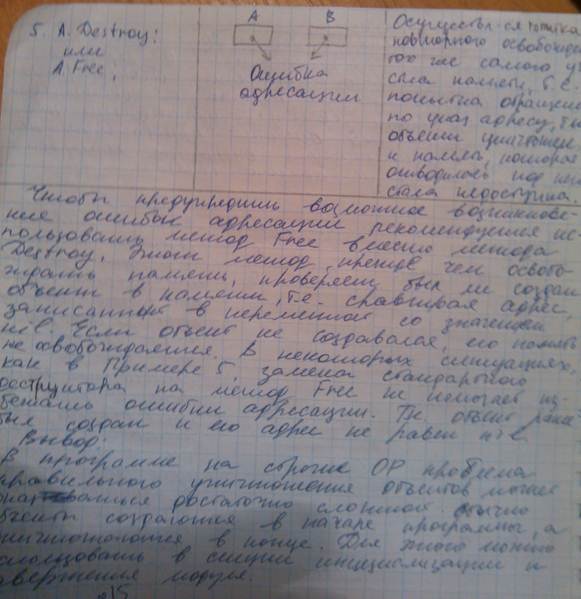 5. A. Destroy;
или
A. Free;
A B
Ошибка
адресации
Осуществл-ся попытка
повторного освобожде
того же самого уч
стка памяти, т.е.
попытка обращения
по указ. адресу,
объект уничтожен
и память, которая
отводилась под него
стала недоступна.
Чтобы предупредить возможное возникнове-
ние ошибок адресации рекомендуется ис-
пользовать метод Free вместо метода
Destroy. Этот метод, прежде чем освобо-
ждать память, проверяет был ли создан
объект в памяти, т.е. сравнивая адрес,
записанного в переменной со значением
nil. Если объект не создавался, его память
не освобождается. В некоторых ситуациях,
как в Примере 5, замена стандартного
деструктора на метод Free не помогает из-
бежать ошибки адресации. Т.к. объект ранее
был создан и его адрес не равен nil
Вывод:
В программе на строгие ОР проблема
правильного уничтожения объектов может
оказываться достаточно сложной. Обычно
объекты создаются в начале программы, а
уничтожаются в конце. Для этого можно
использовать в секции инициализации и
завершения модуля.
15